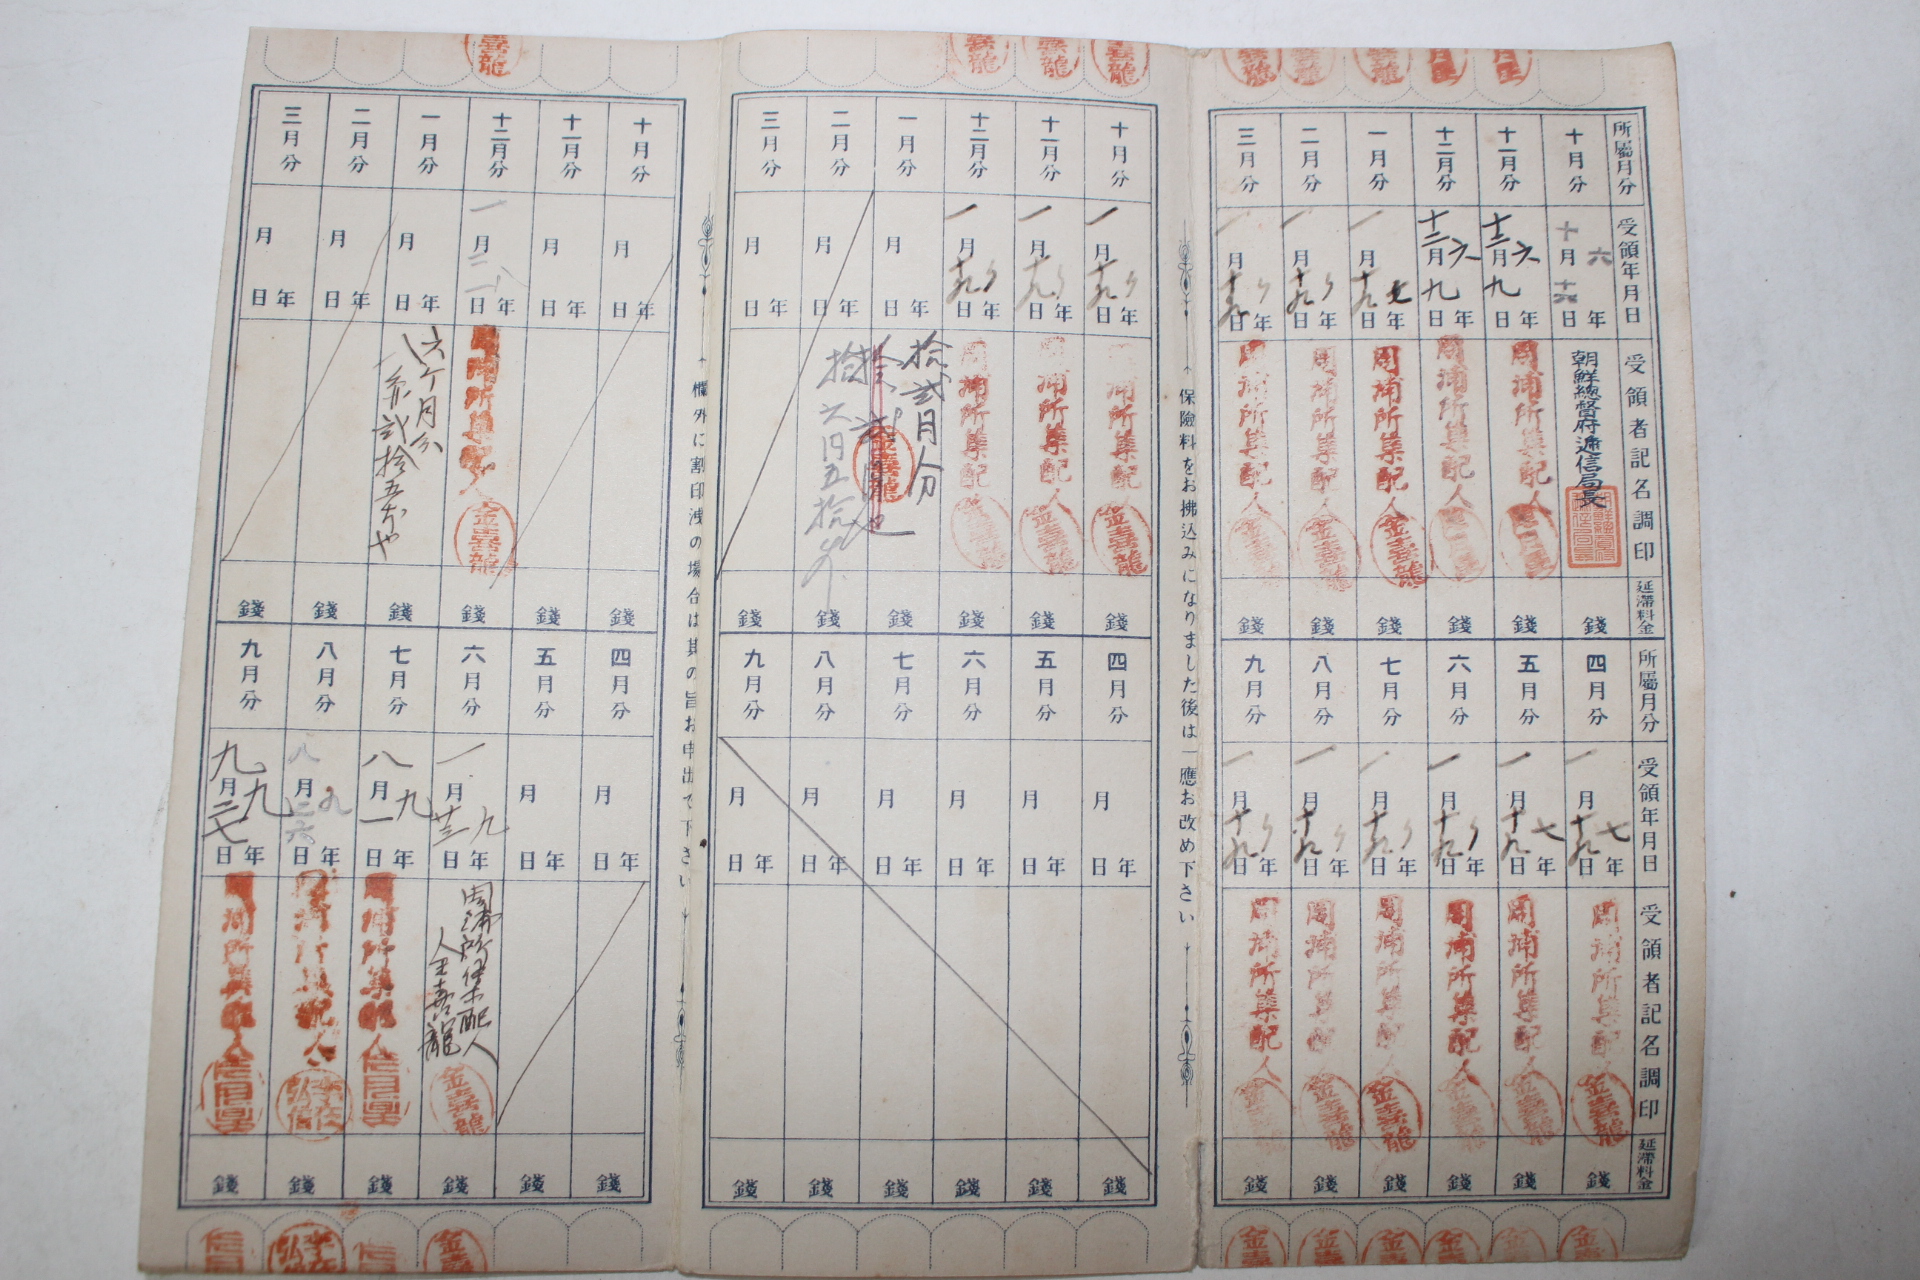 所屬月分
受領年月日
受領者記名調印
延滯料金
十月分
十月十六日 六年
朝鮮總督府遞信局長
錢
十一月分
十二月九日 六年
周浦所集配人
錢
十二月分
十二月九日 六年
周浦所集配人
錢
一月分
一月十九日 七年
周浦所集配人 金喜龍
錢
二月分
一月十九日 〃年
周浦所集配人 金喜龍
錢
三月分
一月十九日 〃年
周浦所集配人 金喜龍
錢
所屬月分
受領年月日
受領者記名調印
延滯料金
四月分
一月十九日 七年
周浦所集配人 金喜龍
錢
五月分
一月十九日 七年
周浦所集配人 金喜龍
錢
六月分
一月十九日 〃年
周浦所集配人 金喜龍
錢
七月分
一月十九日 〃年
周浦所集配人 金喜龍
錢
八月分
一月十九日 〃年
周浦所集配人 金喜龍
錢
九月分
一月十九日 〃年
周浦所集配人 金喜龍
錢
保險料をお拂込みになりました後は一應お改め下さい
十月分
一月十九日 〃年
周浦所集配人 金喜龍
錢
十一月分
一月十九日 〃年
周浦所集配人 金喜龍
錢
十二月分
一月十九日 〃年
周浦所集配人 金喜龍
錢
一月分
月 日 年
拾貳月分
金喜龍
錢
二月分
月 日 年
拾六円五拾
錢
三月分
月 日 年
錢
四月分
月 日 年
錢
五月分
月 日 年
錢
六月分
月 日 年
錢
七月分
月 日 年
錢
八月分
月 日 年
錢
九月分
月 日 年
錢
欄外に割印洩の場合は其の旨お申出で下さい
十月分
月 日 年
錢
十一月分
月 日 年
錢
十二月分
一月二一日 八年
周浦所集配人 金喜龍
錢
一月分
月 日 年
六ケ月分
貳拾五
錢
二月分
月 日 年
錢
三月分
月 日 年
錢
四月分
月 日 年
錢
五月分
月 日 年
錢
六月分
一月廿三日 九年
周浦所集配人 金喜龍
金喜龍
錢
七月分
八月一日 九年
周浦所集配人
錢
八月分
八月二六日 九年
周浦所集配人
錢
九月分
九月二七日 九年
周浦所集配人
錢